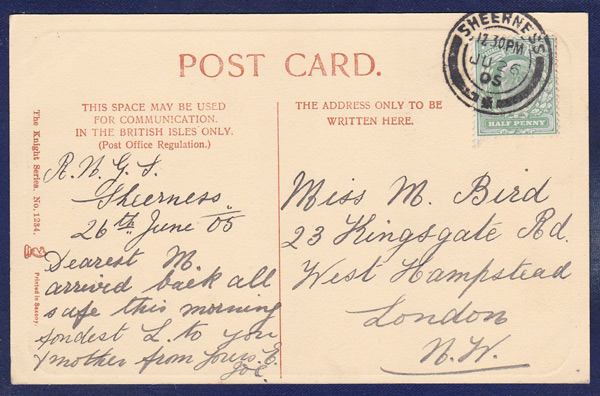 POST CARD.
THIS SPACE MAY BE USED
FOR COMMUNICATION.
IN THE BRITISH ISLES ONLY.
(Post Office Regulation.)
THE ADDRESS ONLY TO BE
WRITTEN HERE.
The Knight Series. No. 1234.
Printed in Saxony
SHEERNESS
12.30PM
JU 26
05
HALF PENNY
R.N.G.S.
Sheerness
26th June 05
Dearest M.
arrived back all
safe this morning
fondest L. to you
& mother from yours E.
Miss M. Bird
23 Kingsgate Rd.
West Hampstead
London
N.W.